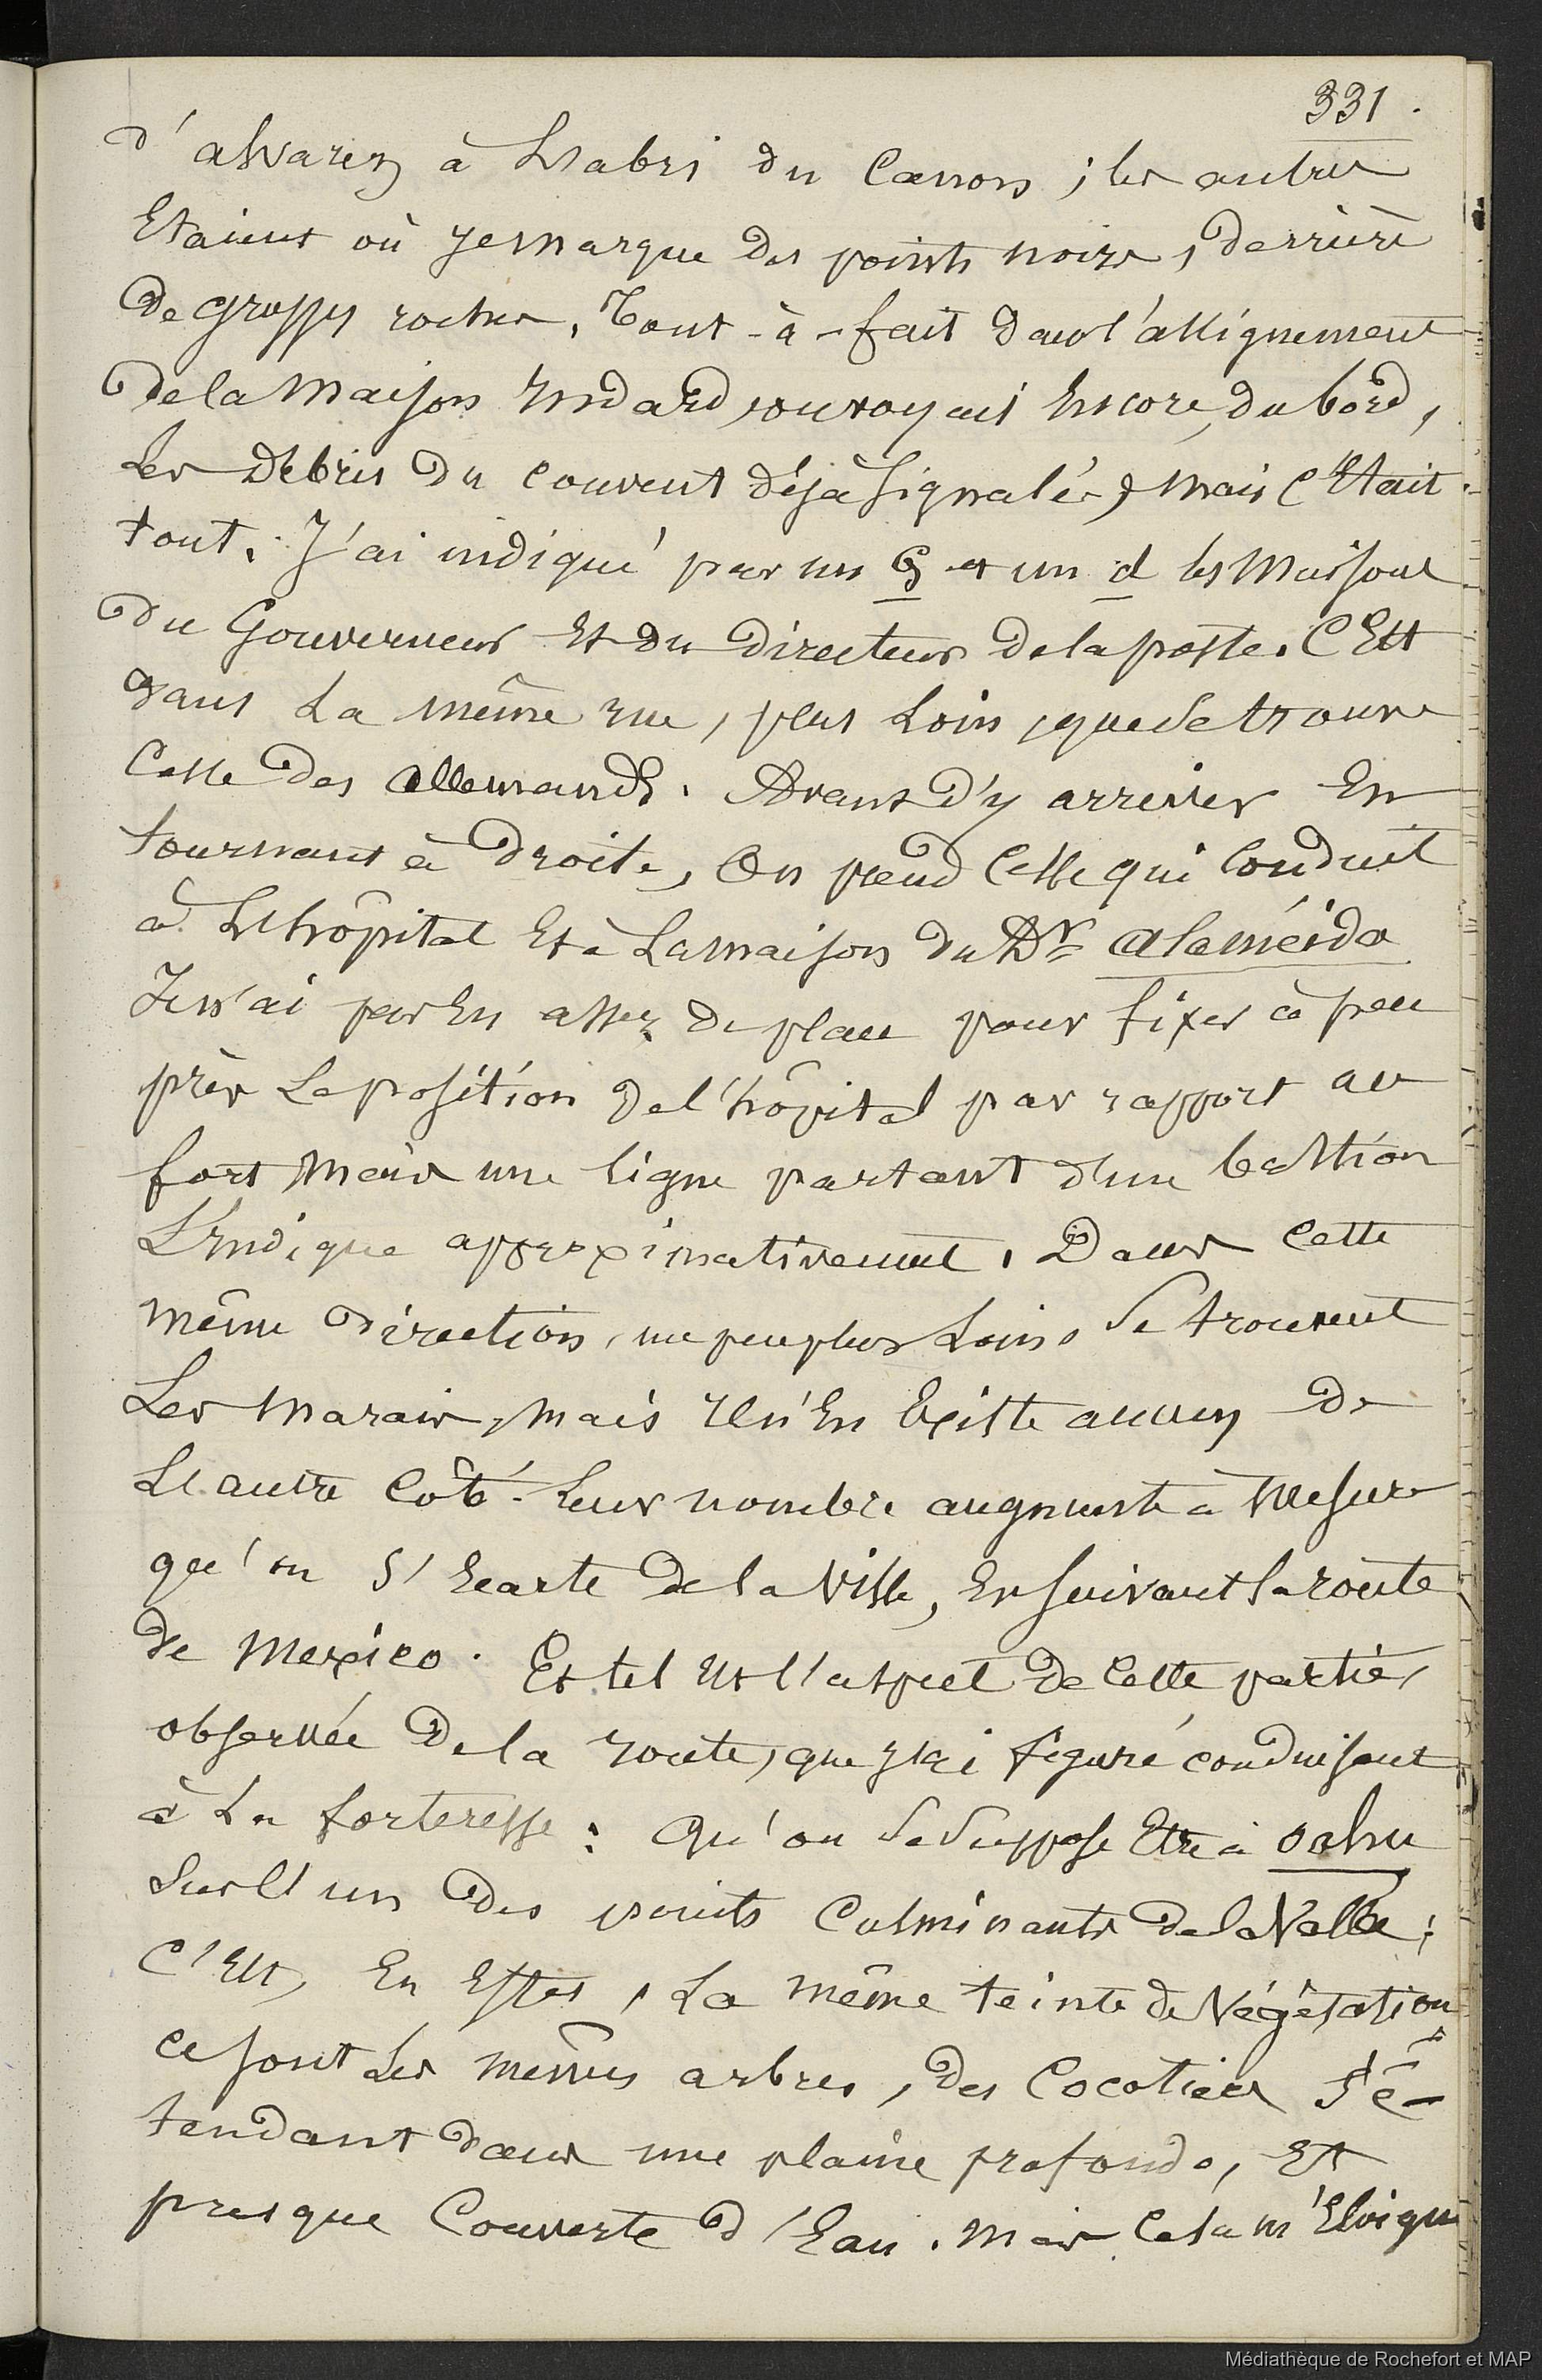 331.
d'alvarez à L'abri du Canon ; les autres
Etaient où je marque des points noirs, derrière
de grosses roches. Tout-à-fait dans l'allignement
de la maison on voyait Encore, du bord,
Les Débris du couvent déjà signalés, mais c'Etait
tout. J'ai indiqué par un G et un d les Maisons
du Gouverneur Et du Directeur de la poste. C'Est
dans La même rue, plus Loin, que se trouve
Celle des allemands. Avant d'y arriver En
tournant à droite, On prend Celle qui Conduit
à L'hôpital Et à La maison du Dr alaméida
Je n'ai pas Eu assez de place pour fixer à peu
près La position de l'hôpital par rapport au
fort mais une ligne partant d'un bastion
L'Indique approximativement. Dans Cette
même direction, un peu plus Loin, se trouvent
Les marais, mais il n'En Existe aucun de
L'autre Côté. Leur nombre augmente à mesure
qu'on s'Ecarte de la Ville, En suivant la route
de Mexico. Et tel Est l'aspect de Cette partie,
observée de la route, que j'ai figuré conduisant
à La forteresse : Qu'on se suppose Etre à oahu
sur l'un des points Culminants de la Vallée ;
C'Est, En Effet, La même teinte de Végétation
ce sont Les mêmes arbres, des Cocotiers s'é-
tendant dans une plaine profonde, Et
presque Couverte d'Eau. Mais Cela m'Eloigne
Médiathèque de Rochefort et MAP